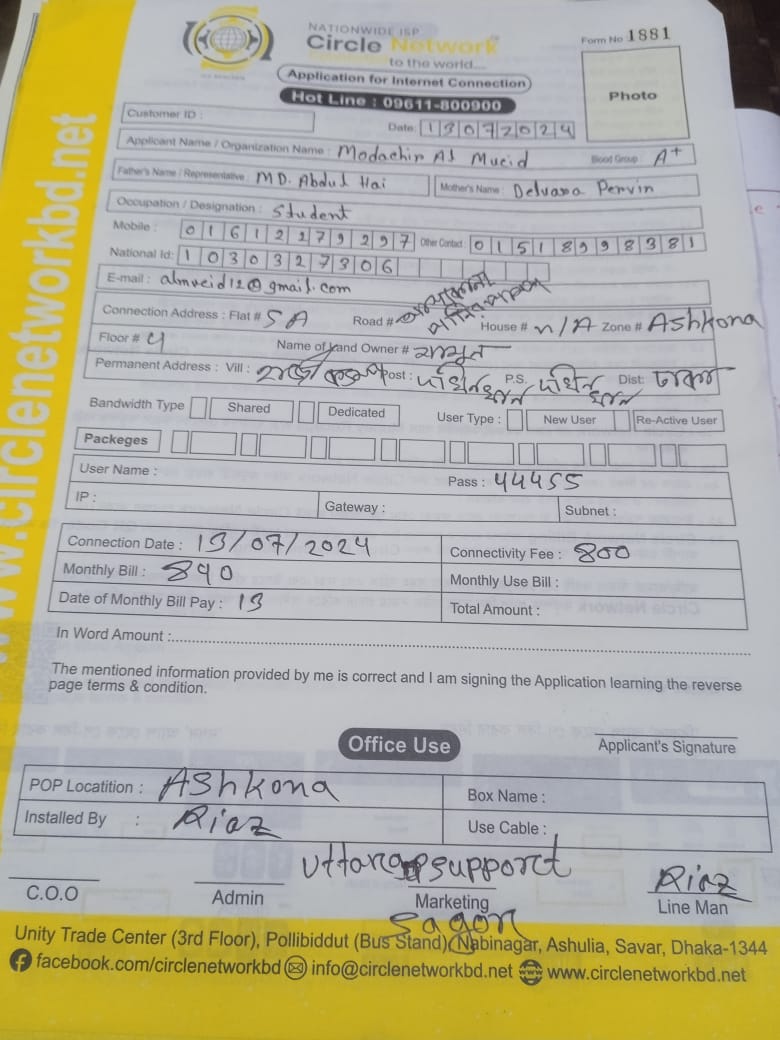 www.circlenetworkbd.net
NATIONWIDE ISP
Circle Network
to the world...
Application for Internet Connection
Hot Line : 09611-800900
Form No 1881
Photo
Customer ID :
Date: 13072024
Applicant Name / Organization Name : Modachir Al Mucid Blood Group : A+
Father's Name / Representative : MD. Abdul Hai Mother's Name : Delvara Pervin
Occupation / Designation : Student
Mobile : 01612279297 Other Contact : 01518998381
National Id: 1030327306
E-mail : almucid12@gmail.com
Connection Address : Flat # 5A Road # House # n/A Zone # Ashkona
Floor # 4 Name of Land Owner #
Permanent Address : Vill : Post : P.S. Dist: ঢাকা
Bandwidth Type Shared Dedicated User Type : New User Re-Active User
Packeges
User Name : Pass : 44455
IP : Gateway : Subnet :
Connection Date : 13/07/2024 Connectivity Fee : 800
Monthly Bill : 840 Monthly Use Bill :
Date of Monthly Bill Pay : 13 Total Amount :
In Word Amount :
The mentioned information provided by me is correct and I am signing the Application learning the reverse
page terms & condition.
Applicant's Signature
Office Use
POP Locatition : Ashkona Box Name :
Installed By : Riaz Use Cable :
Uttara support
C.O.O Admin Marketing Riaz Line Man
Sagor
Unity Trade Center (3rd Floor), Pollibiddut (Bus Stand) Nabinagar, Ashulia, Savar, Dhaka-1344
facebook.com/circlenetworkbd info@circlenetworkbd.net www.circlenetworkbd.net